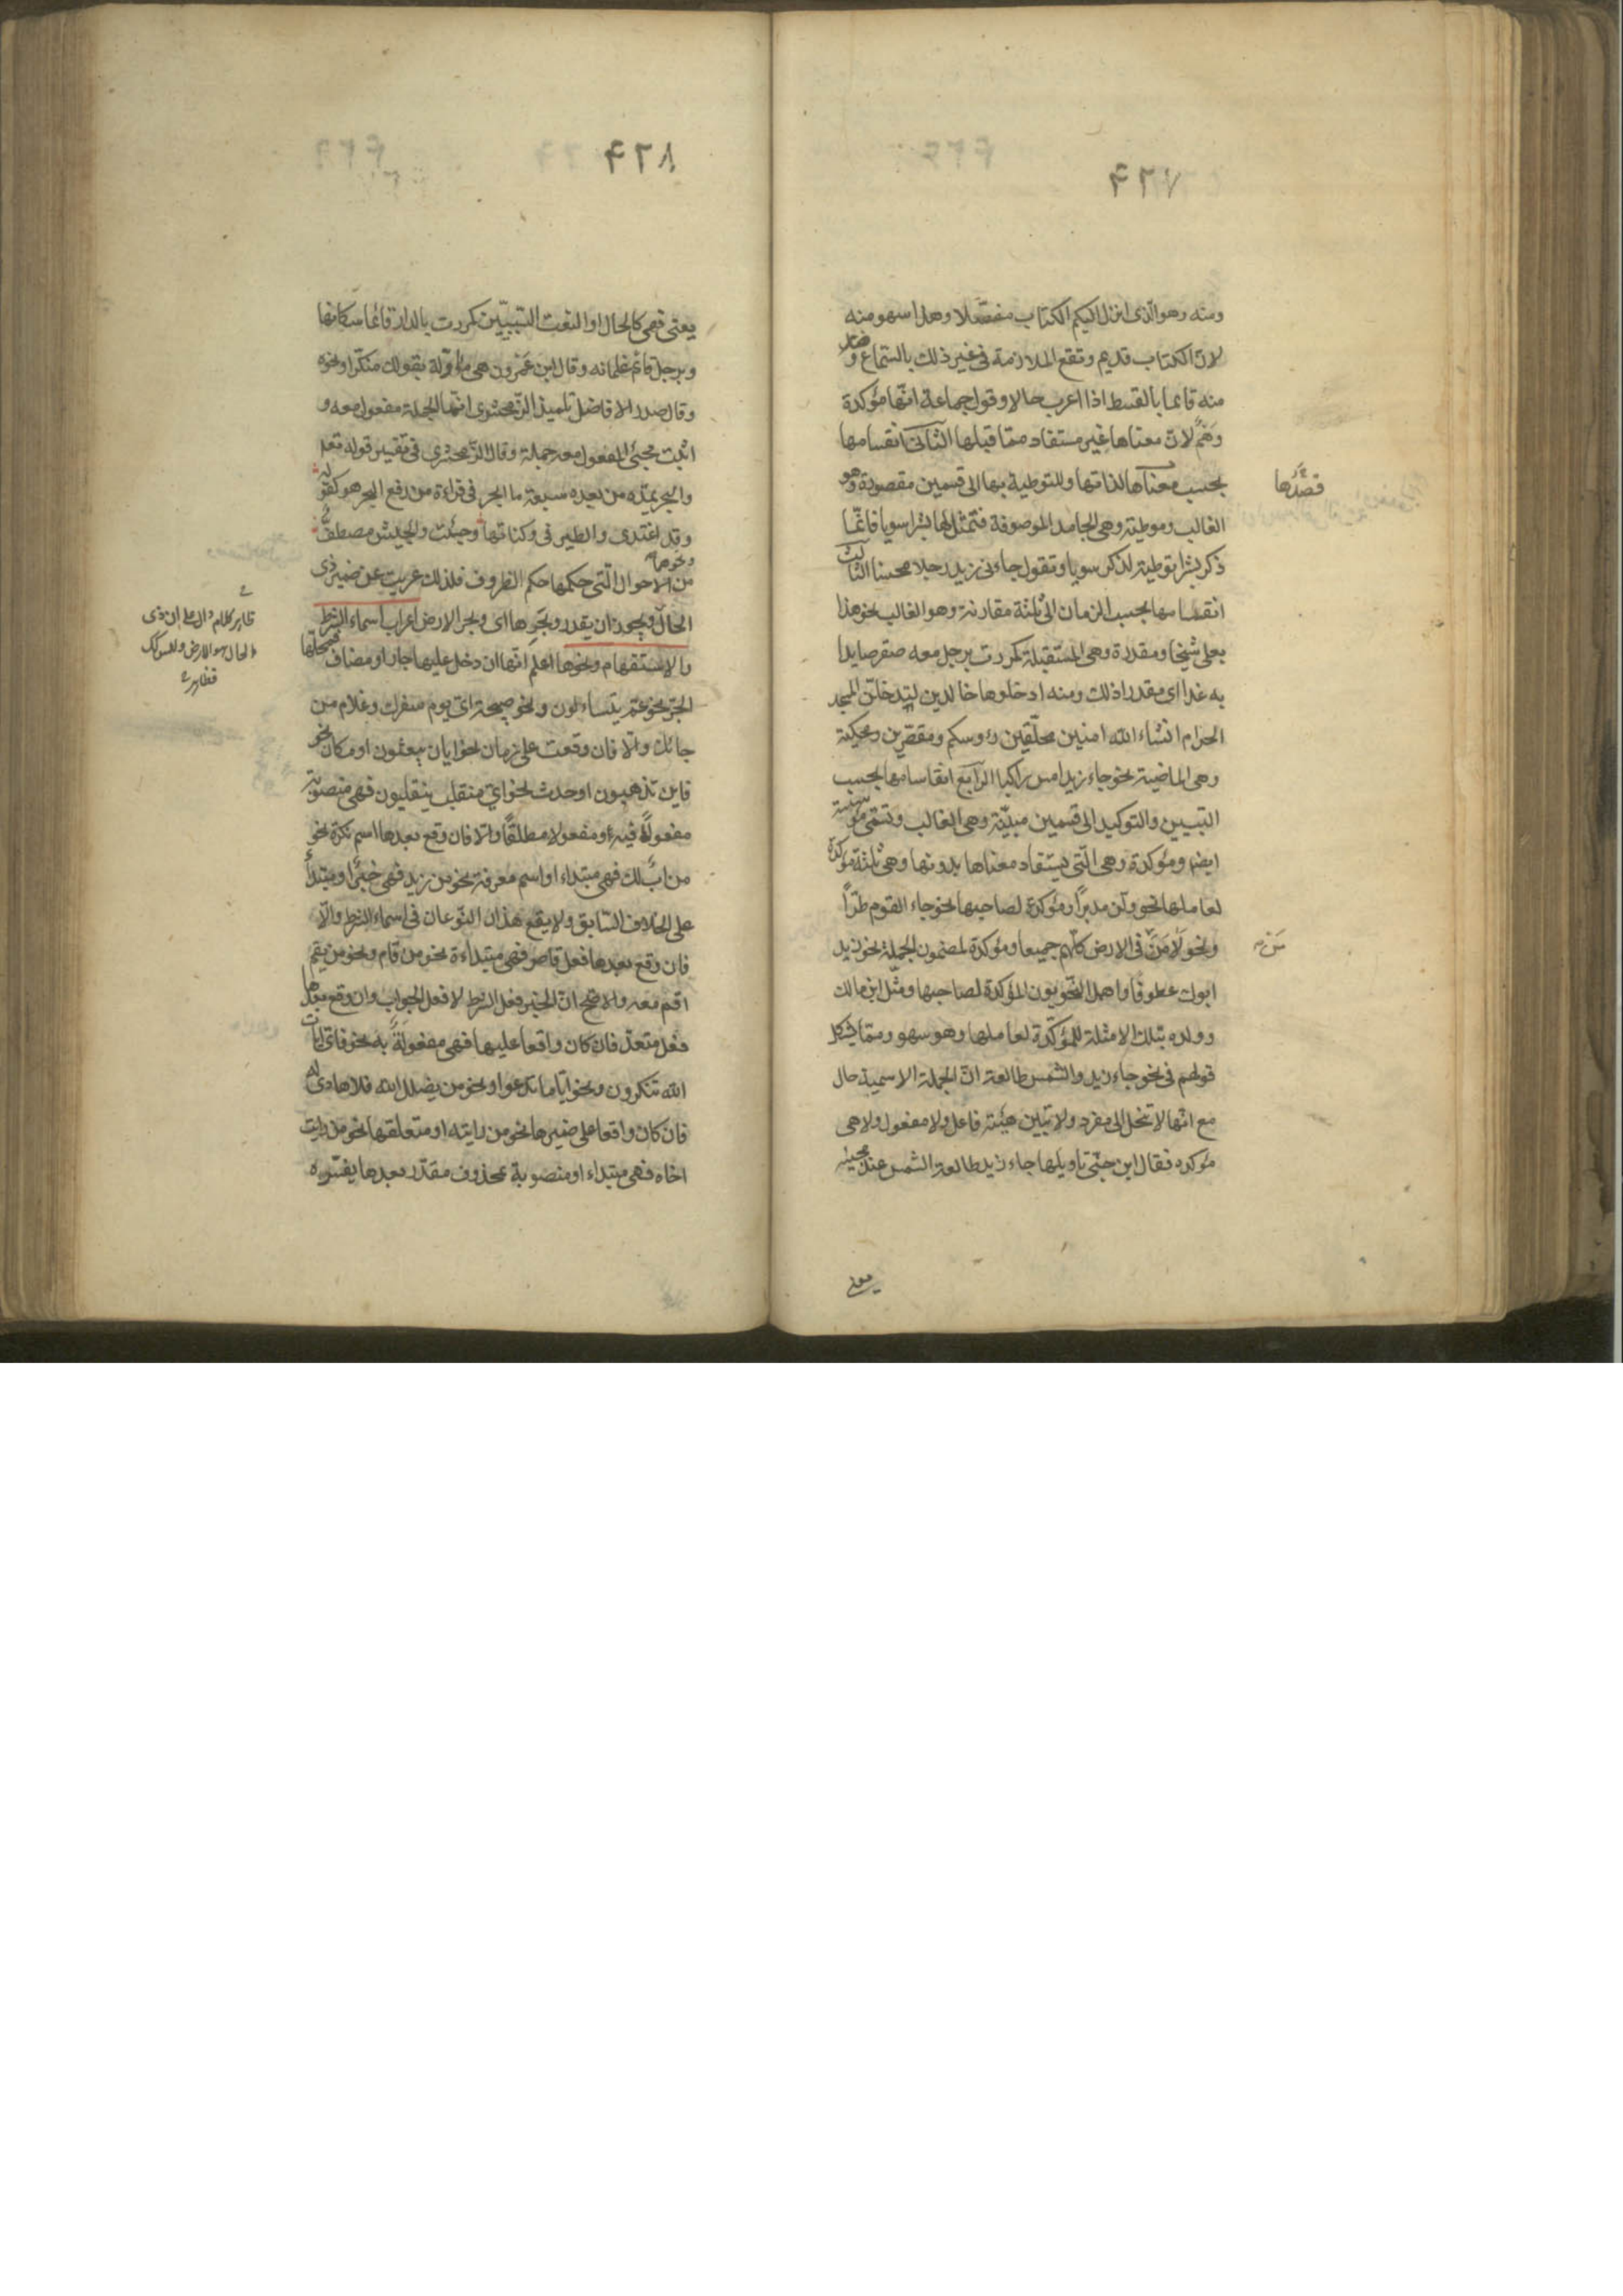 ٤٢٧
ومنه وهو الذى انزل اليكم الكتاب مفصلا وهذا سهو منه
لان الكتاب قديم وتقع الملازمة فى غير ذلك بالسماع و
منه قائما بالقسط اذا اعرب حالا وقول جماعة انها مؤكدة
وهم لان معناها غير مستفاد مما قبلها الثانى انقسامها
بحسب معناها لذاتها وللتوطية بها الى قسمين مقصودة وهو
قصدها
الغالب وموطية وهى الجامد الموصوفة فتمثل لها بشرا سويا فانما
ذكر بشرا توطية لذكر سويا وتقول جاءنى زيد رجلا محسنا الثالث
انقسامها بحسب الزمان الى ثلثة مقارنة وهو الغالب نحو هذا
بعلى شيخا ومقدرة وهى المستقبلة كمررت برجل معه صقر صايدا
به غدا اى مقدرا ذلك ومنه ادخلوها خالدين لتدخلن المسجد
الحرام انشاء الله امنين محلقين رؤوسكم ومقصرين ومحكية
وهى الماضية نحو جاء زيد امس راكبا الرابع انقسامها بحسب
التبيين والتوكيد الى قسمين مبينة وهى الغالب وتسمى مؤسسة
ايضا ومؤكدة وهى التى يستفاد معناها بدونها وهى ثلثة مؤكدة
لعاملها نحو ولى مدبرا ومؤكدة لصاحبها نحو جاء القوم طرا
ونحو لامن فى الارض كلهم جميعا ومؤكدة لمضمون الجملة نحو زيد
من
ابوك عطوفا واهمل النحويون المؤكدة لصاحبها ومثل ابن مالك
وولده بتلك الامثلة للمؤكدة لعاملها وهو سهو ومما يشكل
قولهم فى نحو جاء زيد والشمس طالعة ان الجملة الاسمية حال
مع انها لا تنحل الى مفرد ولا تبين هيئة فاعل ولا مفعول ولا هى
مؤكده فقال ابن جنى تاويلها جاء زيد طالعة الشمس عند مجيئه
يعنى
٤٢٨
يعنى فهى كالحال او النعت السببيين كمررت بالدار قائما سكانها
وبرجل قائم غلمانه وقال ابن عمرون هى ماولة بقولك مبكرا ونحوه
وقال صدر الافاضل تلميذ الزمخشرى انما الجملة مفعول معه و
اثبت مجئ المفعول معه جملة وقال الزمخشرى فى تفسير قوله تعم
والبحر يمده من بعده سبعة ابحر فى قراءة من رفع البحر هو كقوله
وقد اغتدى والطير فى وكناتها وجئت والجيش مصطف
ونحوها
من الاحوال التى حكمها حكم الظروف فلذلك عريت عن ضمير ذى
الحال ويجوز ان يقدر وبحرها اى وبحر الارض اعراب اسماء الشرط
والاستفهام ونحوها اعلم انها ان دخل عليها جار او مضاف فمحلها
الجر نحو عم يتساءلون ونحو صبيحة اى يوم سفرك وغلام من
جاءك والا فان وقعت على زمان نحو ايان يبعثون او مكان نحو
فاين تذهبون او حدث نحو اى منقلب ينقلبون فهى منصوبة
مفعولا فيه او مفعولا مطلقا والا فان وقع بعدها اسم نكرة نحو
من اب لك فهى مبتداء او اسم معرفة نحو من زيد فهى خبر او مبتدأ
على الخلاف السابق ولا يقع هذان النوعان فى اسماء الشرط والا
فان وقع بعدها فعل قاصر فهى مبتداءة نحو من قام ونحو من يقم
اقم معه والاصح ان الخبر فعل الشرط لا فعل الجواب وان وقع بعدها
فعل متعد فان كان واقعا عليها فهى مفعولة به نحو فاى ايات
الله تنكرون ونحو اياما تدعوا ونحو من يضلل الله فلا هادى له
فان كان واقعا على ضميرها نحو من رايته او متعلقها نحو من رايت
اخاه فهى مبتداء او منصوبة بمحذوف مقدر بعدها يفسره
ظاهر كلام دال على ان ذى
الحال هو الارض